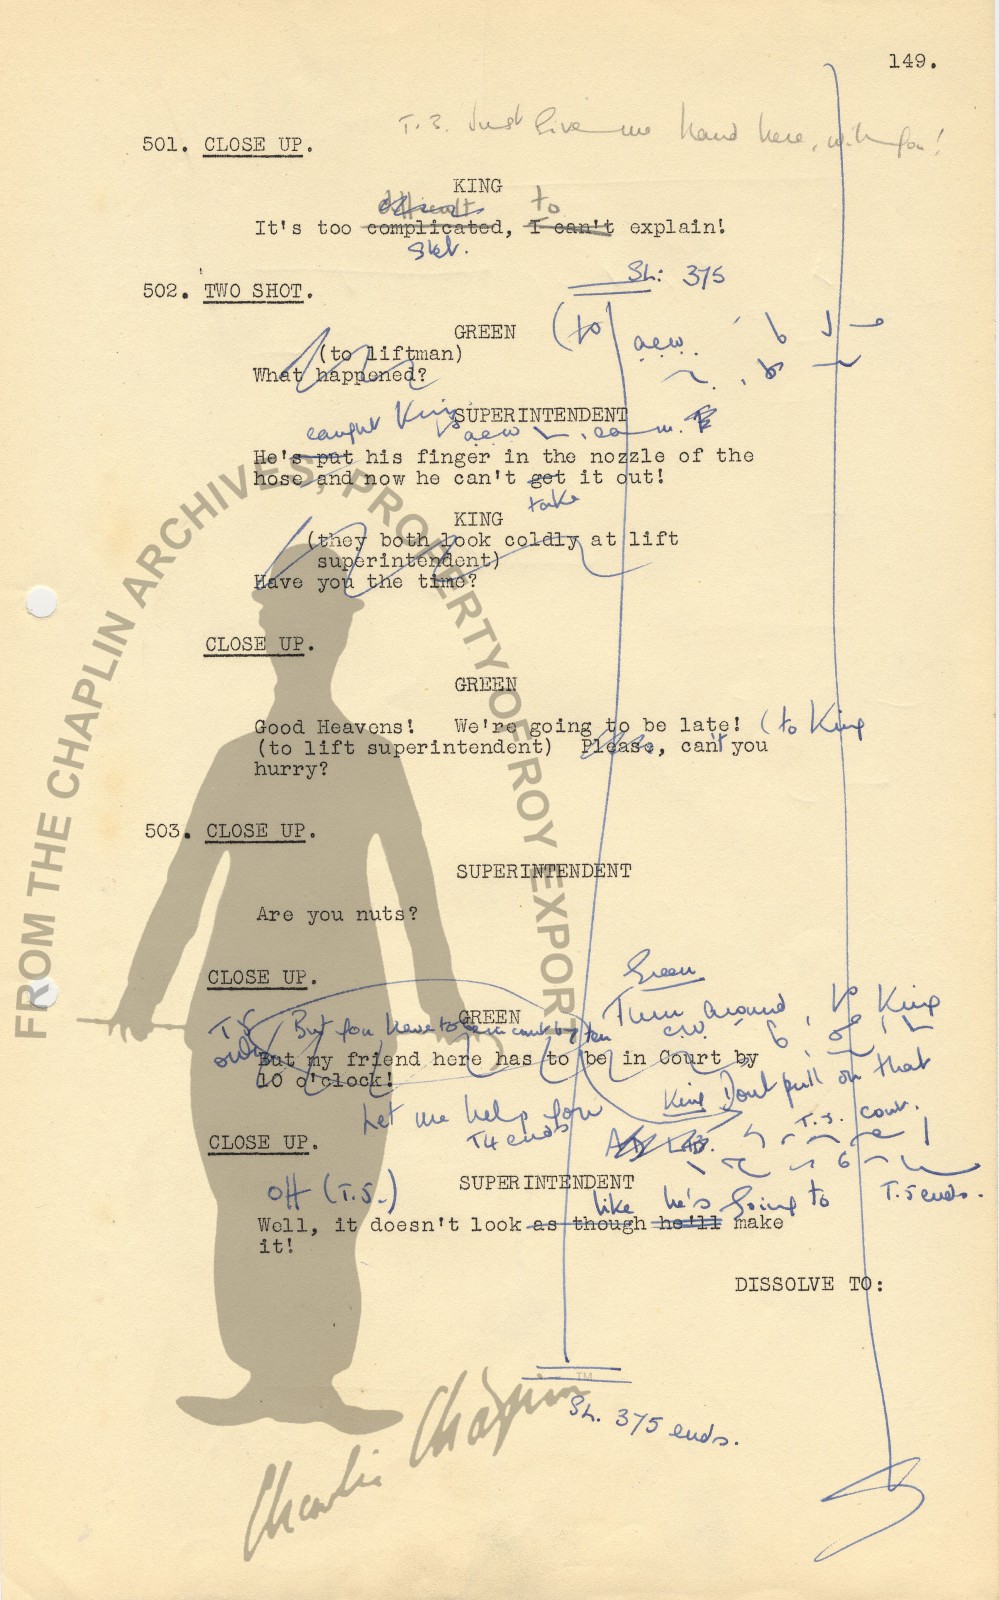 149.
T.3. Just give me hand here, will you!
501. CLOSE UP.
KING
difficult to
It's too complicated, I can't explain!
Sht.
Sh: 375
502. TWO SHOT.
GREEN
(to
(to liftman)
What happened?
SUPERINTENDENT
caught King's
He's put his finger in the nozzle of the
hose and now he can't get it out!
take
KING
(they both look coldly at lift
superintendent)
Have you the time?
CLOSE UP.
GREEN
Good Heavens! We're going to be late! (to King
(to lift superintendent) Please, can't you
hurry?
503. CLOSE UP.
SUPERINTENDENT
Are you nuts?
Green
CLOSE UP.
Turn around, to King
GREEN
T.5 But you have to be in court by ten
only
But my friend here has to be in Court by
10 o'clock!
King Don't pull on that
Let me help you
T4 ends
T.3. cont.
CLOSE UP.
SUPERINTENDENT
off (T.5.)
like he's going to
T.5 ends.
Well, it doesn't look as though he'll make
it!
DISSOLVE TO:
Sh. 375 ends.
FROM THE CHAPLIN ARCHIVES, PROPERTY OF ROY EXPORT
Charlie Chaplin
TM